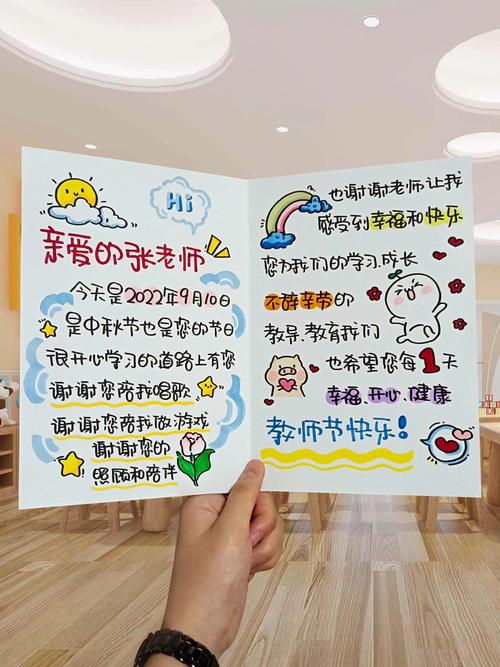 Hi
亲爱的张老师
今天是2022年9月10日
是中秋节也是您的节日
很开心学习的道路上有您
谢谢您陪我唱歌
谢谢您陪我做游戏
谢谢您的
照顾和陪伴
也谢谢老师让我
感受到幸福和快乐
您为我们的学习、成长
不辞辛劳的
教导、教育我们
也希望您每1天
幸福、开心、健康
教师节快乐!